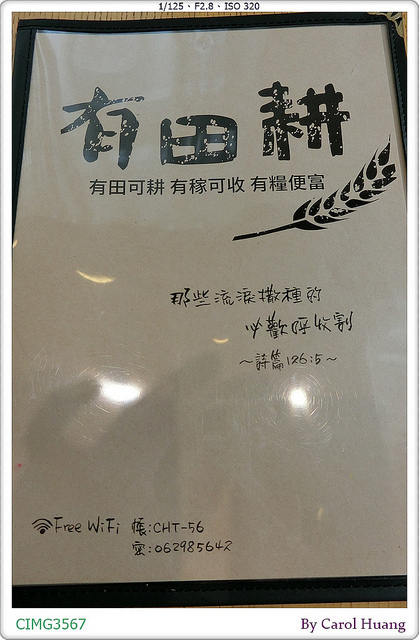 1/125、F2.8、ISO 320
有田耕
有田可耕 有稼可收 有糧便富
那些流淚撒種的
必歡呼收割
~詩篇126:5~
Free WiFi 帳:CHT-56
密:062985642
CIMG3567
By Carol Huang